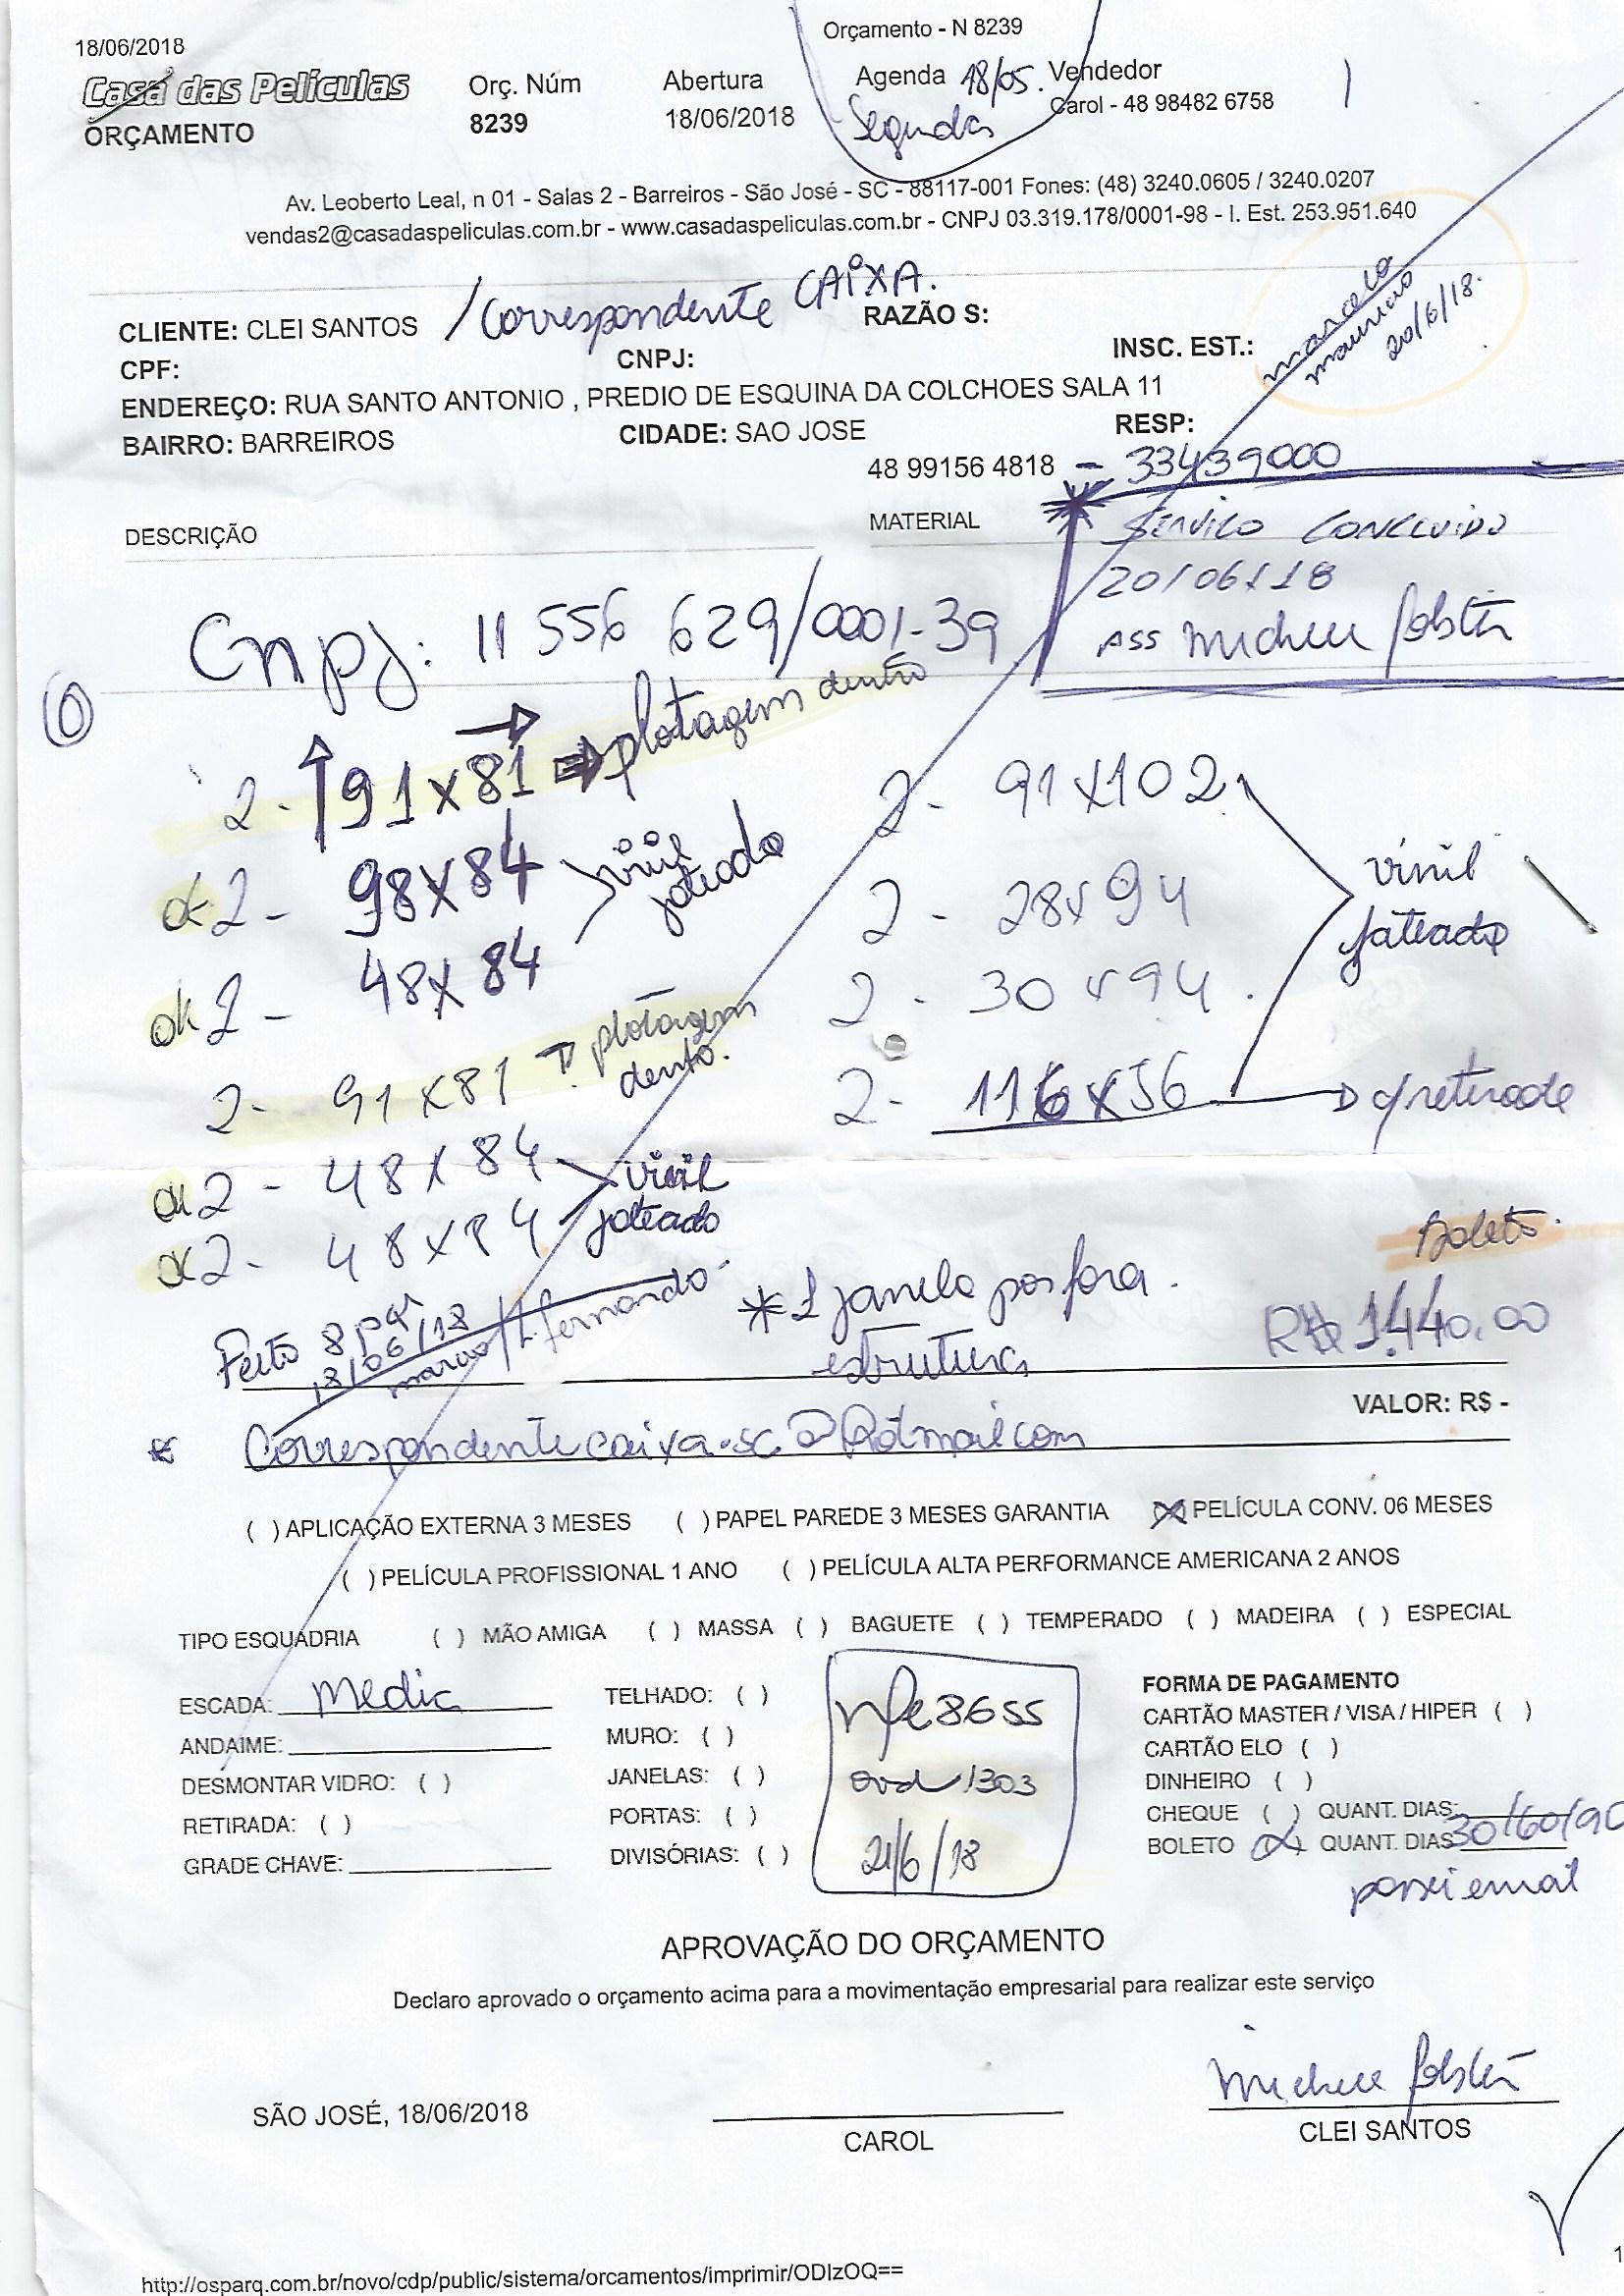 18/06/2018
Orçamento - N 8239
Casa das Películas
ORÇAMENTO
Orç. Núm
8239
Abertura
18/06/2018
Agenda 18/05.
Segunda
Vendedor
Carol - 48 98482 6758
Av. Leoberto Leal, n 01 - Salas 2 - Barreiros - São José - SC - 88117-001 Fones: (48) 3240.0605 / 3240.0207
vendas2@casadaspeliculas.com.br - www.casadaspeliculas.com.br - CNPJ 03.319.178/0001-98 - I. Est. 253.951.640
marcelo
mauricio
20/6/18.
CLIENTE: CLEI SANTOS / Correspondente CAIXA. RAZÃO S:
CPF: CNPJ: INSC. EST.:
ENDEREÇO: RUA SANTO ANTONIO , PREDIO DE ESQUINA DA COLCHOES SALA 11
BAIRRO: BARREIROS CIDADE: SAO JOSE RESP:
48 99156 4818 - 33439000
DESCRIÇÃO MATERIAL
SERVIÇO CONCLUIDO
20/06/18
ASS
Cnpj: 11 556 629/0001-39
2 - 91x81 plotagem dentro
ok 2 - 98x84
vinil jateado
ok 2 - 48x84
2 - 91x81 plotagem
dentro.
ok 2 - 48x84
vinil
jateado
ok 2 - 48x84
2 - 91x102
2 - 28x94
2 - 30x94.
2 - 116x56
vinil
jateado
p/retirada
Feito 8
18/06/18
marcio / L. fernando.
* 1 janela por fora.
estrutura
Boleto.
R$ 1.440,00
VALOR: R$ -
* Correspondentecaixa.sc@hotmail.com
( ) APLICAÇÃO EXTERNA 3 MESES ( ) PAPEL PAREDE 3 MESES GARANTIA (X) PELÍCULA CONV. 06 MESES
( ) PELÍCULA PROFISSIONAL 1 ANO ( ) PELÍCULA ALTA PERFORMANCE AMERICANA 2 ANOS
TIPO ESQUADRIA ( ) MÃO AMIGA ( ) MASSA ( ) BAGUETE ( ) TEMPERADO ( ) MADEIRA ( ) ESPECIAL
ESCADA: Media
ANDAIME:
DESMONTAR VIDRO: ( )
RETIRADA: ( )
GRADE CHAVE:
TELHADO: ( )
MURO: ( )
JANELAS: ( )
PORTAS: ( )
DIVISÓRIAS: ( )
nfe 8655
1303
21/6/18
FORMA DE PAGAMENTO
CARTÃO MASTER / VISA / HIPER ( )
CARTÃO ELO ( )
DINHEIRO ( )
CHEQUE ( ) QUANT. DIAS:
BOLETO (X) QUANT. DIAS 30/60/90
passei email
APROVAÇÃO DO ORÇAMENTO
Declaro aprovado o orçamento acima para a movimentação empresarial para realizar este serviço
SÃO JOSÉ, 18/06/2018
CAROL
CLEI SANTOS
1
http://osparq.com.br/novo/cdp/public/sistema/orcamentos/imprimir/ODIzOQ==